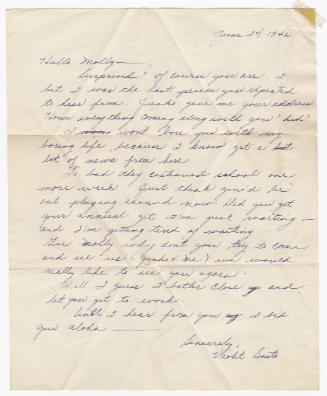 June 24, 1942
Hello Molly —
Surprised? Of course you are. I
bet I was the last person you expected
to hear from. gave me your address
Hows everything coming along with you "kids"?
I wont bore you with my
boring life, because I know get a
lot of news from here.
To bad they continued school one
more week. Just think you'd be
out playing around now. Did you get
your annual yet I'm just waiting —
and I'm getting tired of waiting.
Gee Molly why dont you try to come
and see us ( & me) we would
really like to see you again.
Well I guess I better close up and
let you get to work.
Until I hear from you I bid
you aloha —
Sincerely,